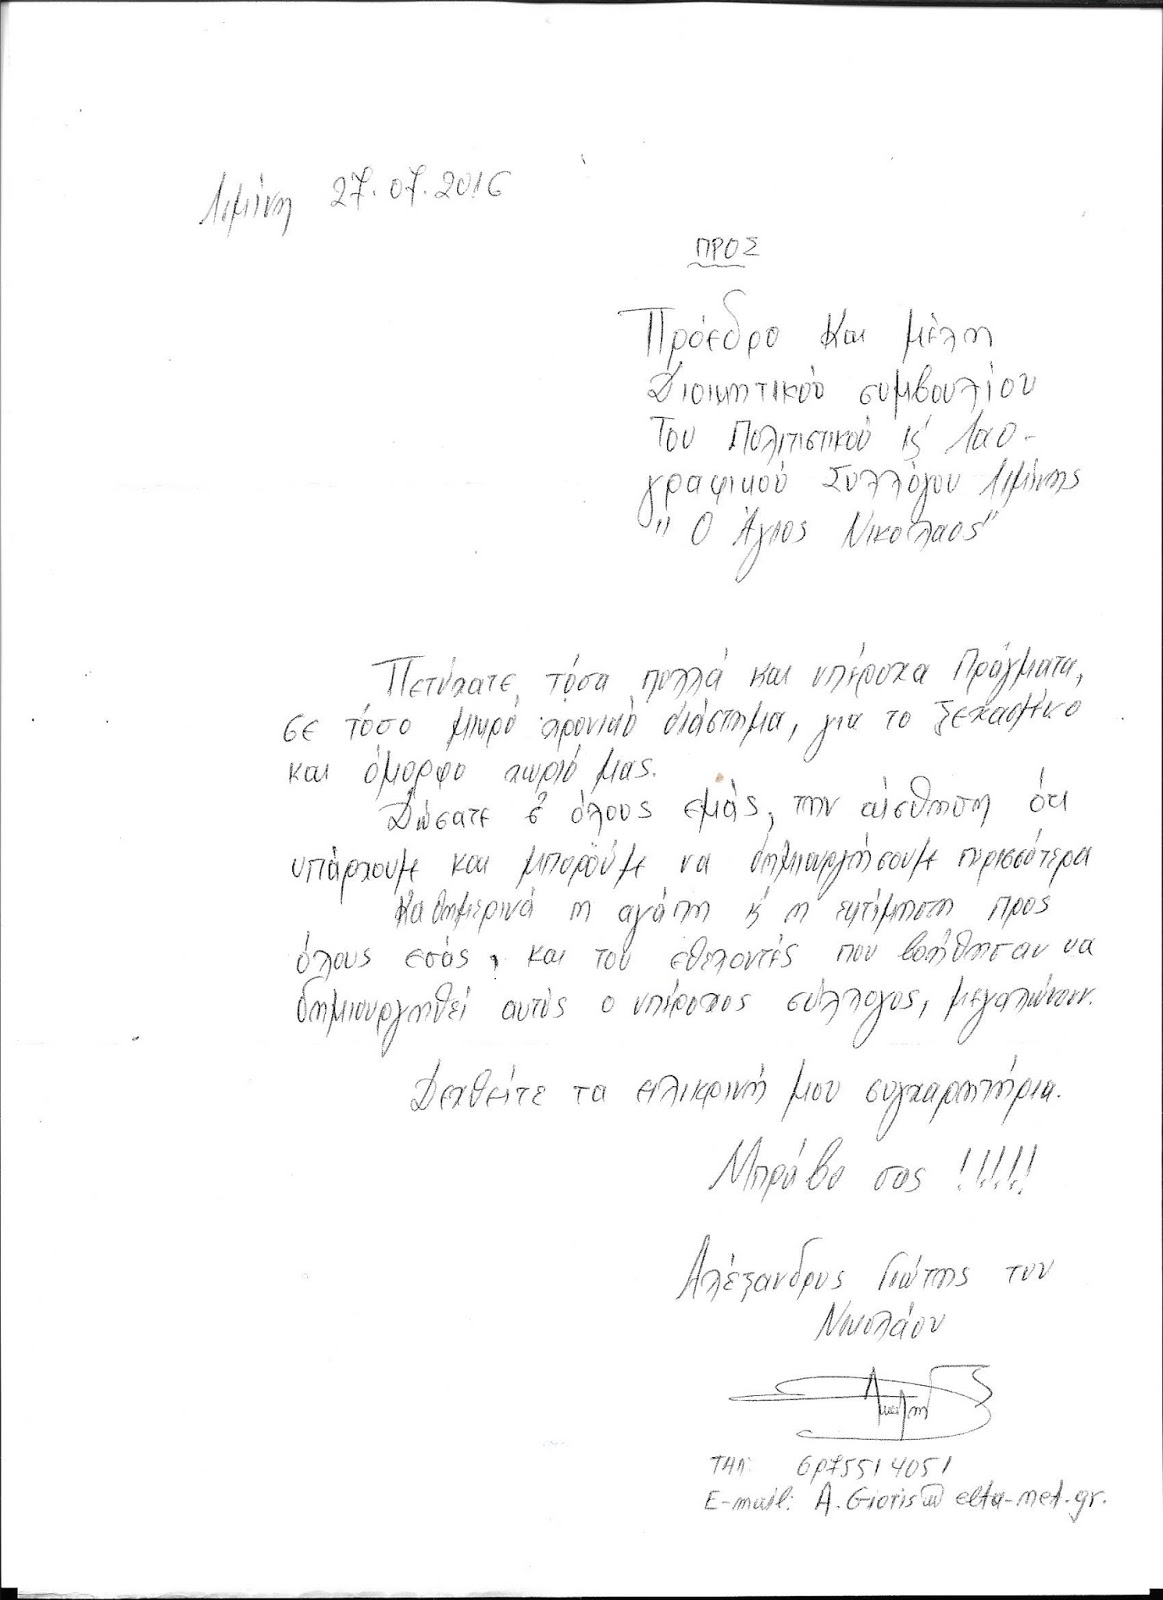 Λιμίνη 27.07.2016
ΠΡΟΣ
Πρόεδρο Και μέλη
Διοικητικού συμβουλίου
Του Πολιτιστικού κ' Λαο-
γραφικού Συλλόγου Λιμίνης
"Ο Άγιος Νικολαος"
Πετύχατε, τόσα πολλά και υπέροχα Πράγματα,
σε τόσο μικρό χρονικό διάστημα, για το ξεχασμένο
και όμορφο χωριό μας.
Δώσατε σ' όλους εμάς, την αίσθηση ότι
υπάρχουμε και μπορούμε να δημιουργήσουμε περισσότερα
Καθημερινά η αγάπη κ' η εκτίμηση προς
όλους εσάς, και του εθελοντές που βοήθησαν να
δημιουργηθεί αυτός ο υπέροχος σύλλογος, μεγαλώνουν.
Δεχθείτε τα ειλικρινή μου συγχαρητήρια.
Μπράβο σας !!!!!
Αλέξανδρος Γιώτης του
Νικολάου
ΤΗΛ: 6975514051
E-mail: A.Giotis@elta-net.gr.